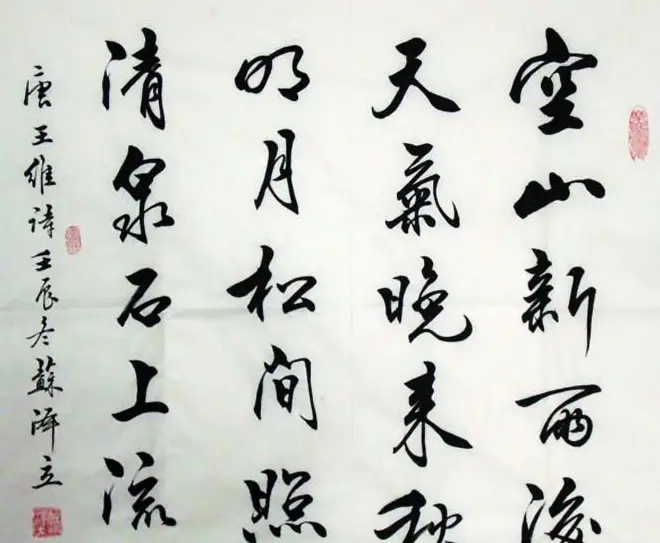 空山新雨後
天氣晚来秋
明月松间照
清泉石上流
唐王维诗壬辰冬蘇泽立